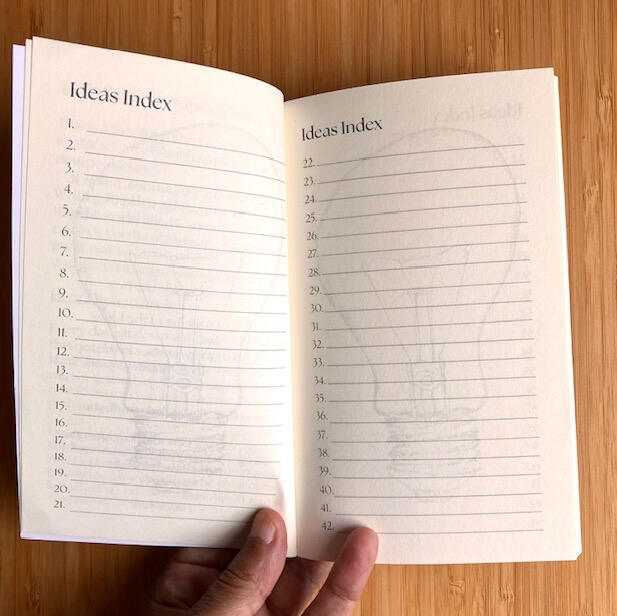 Ideas Index
1.
2.
3.
4.
5.
6.
7.
8.
9.
10.
11.
12.
13.
14.
15.
16.
17.
18.
19.
20.
21.
Ideas Index
22.
23.
24.
25.
26.
27.
28.
29.
30.
31.
32.
33.
34.
35.
36.
37.
38.
39.
40.
41.
42.